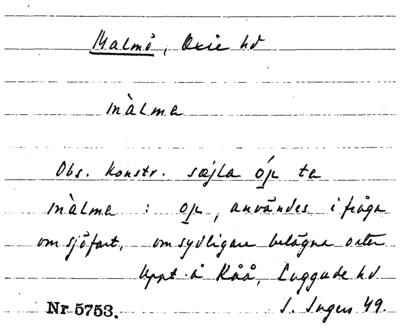 Malmö, Oxie hd
màlma
Obs. Konstr. sæjla óp ta
màlma : op, användes i fråga
om sjöfart, om sydligare belägna orter
Uppt. å Råå, Luggude hd
Nr 5753. S. Ingers 49.